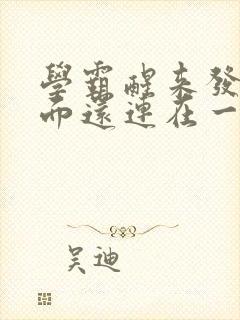 學霸醒來發
而還連在一
吴迪